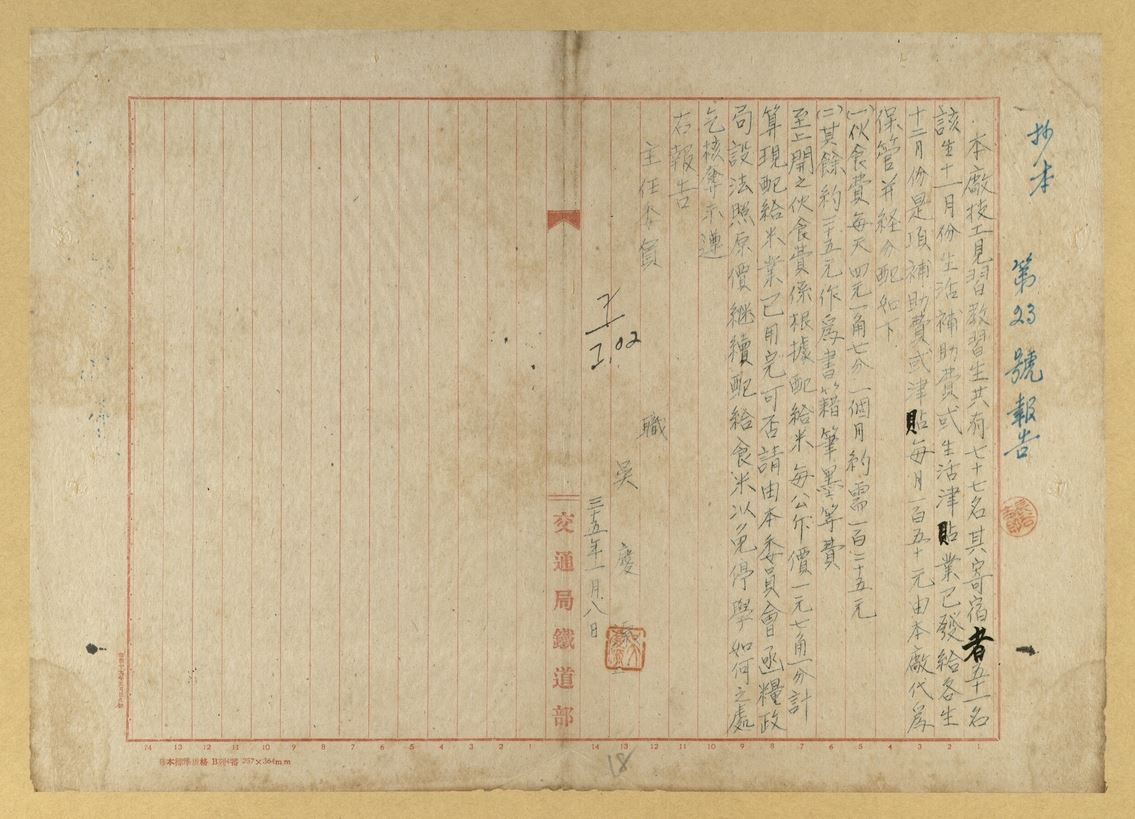 抄本
第23號報告
本廠技工見習教習生共有七十七名其寄宿者五十一名
該生十一月份生活補助費或生活津貼業已發給各生
十二月份是項補助費或津貼每月一百五十元由本廠代為
保管并経分配如下
(一)伙食費每天四元一角七分一個月約需一百二十五元
(二)其餘約二十五元作為書籍筆墨等費
至上開之伙食費係根據配給米每公斤價一元七角一分計
算現配給米業已用完可否請由本委員會函糧政
局設法照原價継續配給食米以免停學如何之處
乞核奪示遵
右報告
主任委員
職 吳 慶
三十五年一月八日
交通局鐵道部
14 13 12 11 10 9 8 7 6 5 4 3 2 1
14 13 12 11 10 9 8 7 6 5 4 3 2 1
日本標準規格 B列4番 257×364mm
18